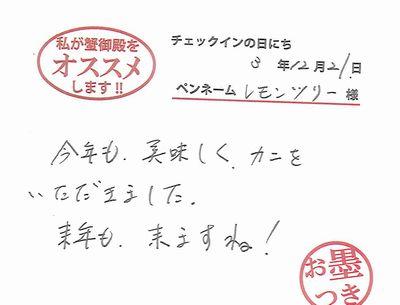 私が蟹御殿を
オススメ
します!!
チェックインの日にち
3年12月21日
ペンネーム レモンツリー様
今年も、美味しく、カニを
いただきました。
来年も、来ますね!
お墨
つき